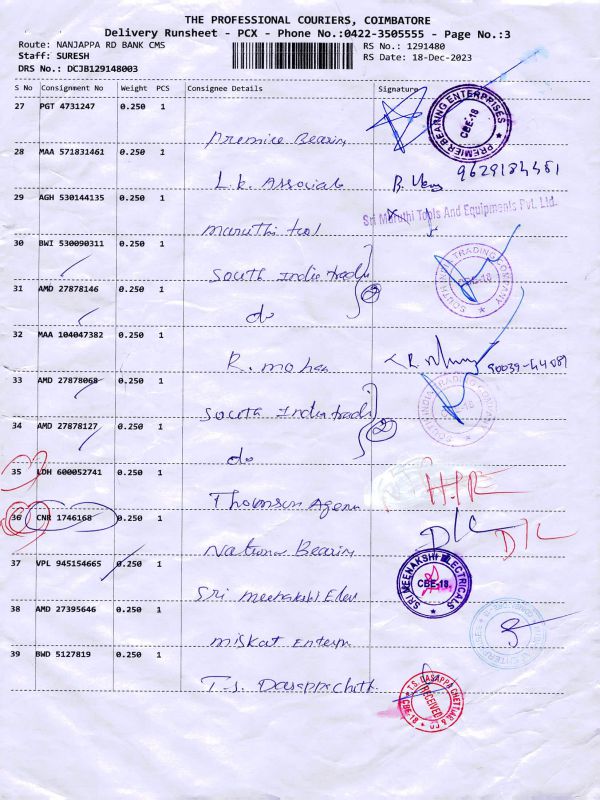 THE PROFESSIONAL COURIERS, COIMBATORE
Delivery Runsheet - PCX - Phone No.:0422-3505555 - Page No.:3
Route: NANJAPPA RD BANK CMS
RS No.: 1291480
Staff: SURESH
RS Date: 18-Dec-2023
DRS No.: DCJB129148003
S No Consignment No Weight PCS Consignee Details Signature
27 PGT 4731247 0.250 1
PREMIER BEARING ENTERPRISES CBE-18
Premier Bearin
28 MAA 571831461 0.250 1
L.K. Associats
29 AGH 530144135 0.250 1
Sri Maruthi Tools And Equipments Pvt. Ltd.
maruthi tool
30 BWI 530090311 0.250 1
South India tradi 2
SOUTH INDIA TRADING COMPANY CBE-18
31 AMD 27878146 0.250 1
do
32 MAA 104047382 0.250 1
R. mohan
33 AMD 27878068 0.250 1
South India tradi 2
SOUTH INDIA TRADING COMPANY
34 AMD 27878127 0.250 1
do
35 LDH 600052741 0.250 1
Thomson Agenc
36 CNR 1746168 0.250 1
D/L D/L
National Bearin
37 VPL 945154665 0.250 1
SRI MEENAKSHI ELECTRICALS CBE-18
Sri meenakshi Elec
38 AMD 27395646 0.250 1
Miskat Enterp
39 BWD 5127819 0.250 1
T.S. Dasappa Chett
T.S. DASAPPA CHETTIAR & CO RECEIVED CBE-18